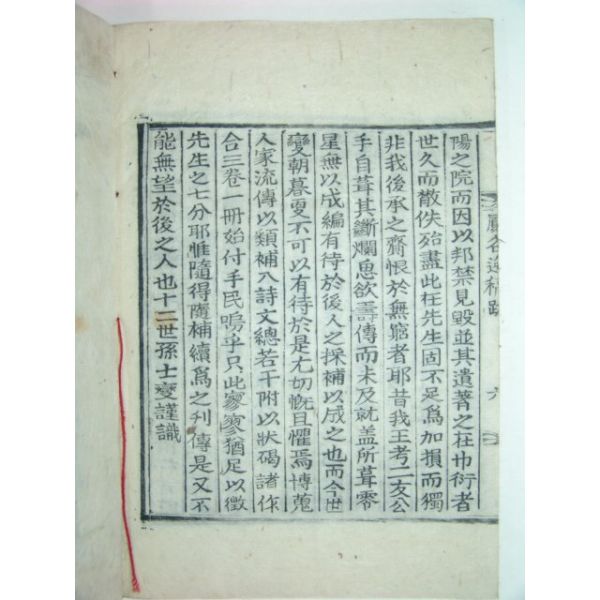 陽之院而因以邦禁見毀並其遺著之在巾衍者
世久而散佚殆盡此在先生固不足爲加損而獨
非我後承之齎恨於無窮者耶昔我王考二友公
手自葺其斷爛思欲壽傳而未及就盖所葺零
星無以成編有待於後人之採補以成之也而今世
變朝暮更不可以有待於是尤切慨且懼焉博蒐
人家流傳以類補入詩文總若干附以狀碣諸作
合三卷一冊始付手民嗚乎只此寥寥猶足以徵
先生之七分耶惟隨得隨補續爲之刋傳是又不
能無望於後之人也十二世孫士燮謹識
谷逸稿跋
六